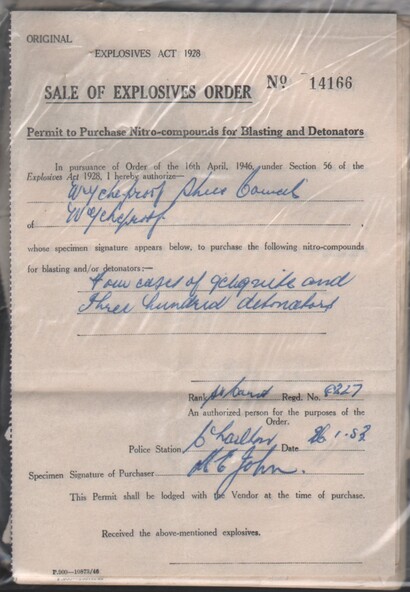 ORIGINAL
EXPLOSIVES ACT 1928
SALE OF EXPLOSIVES ORDER No 14166
Permit to Purchase Nitro-compounds for Blasting and Detonators
In pursuance of Order of the 16th April, 1946, under Section 56 of the
Explosives Act 1928, I hereby authorize—
Wycheproof Shire Council
of Wycheproof
whose specimen signature appears below, to purchase the following nitro-compounds
for blasting and/or detonators:—
four cases of gelignite and
three hundred detonators
Rank Regd. No. 8827
An authorized person for the purposes of the
Order.
Police Station Charlton Date 1.53
Specimen Signature of Purchaser John.
This Permit shall be lodged with the Vendor at the time of purchase.
Received the above-mentioned explosives.
P.500—10873/46